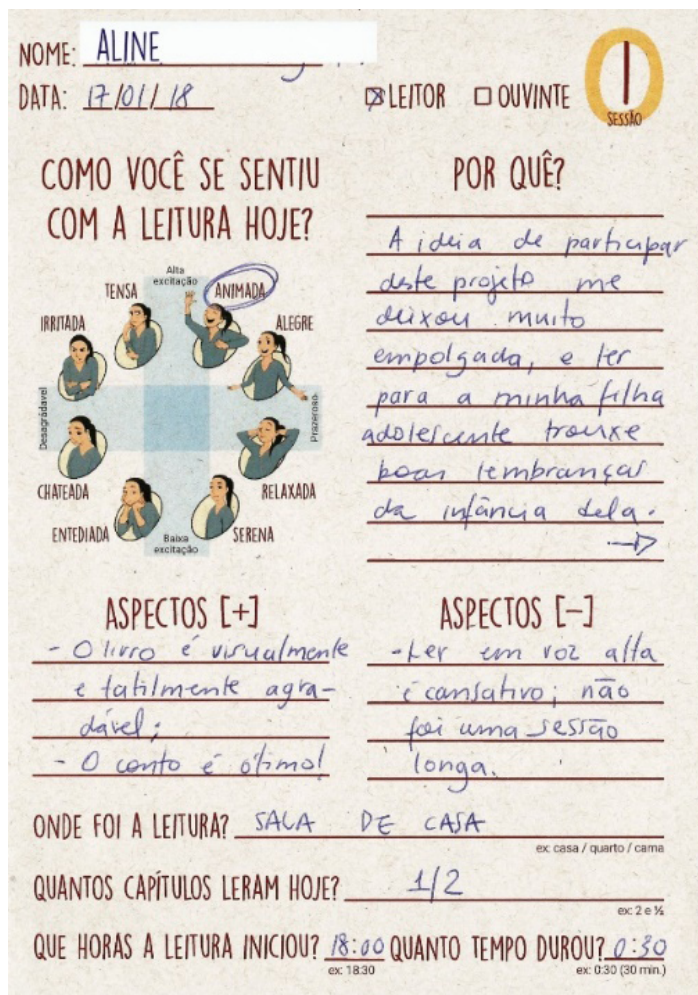 NOME: ALINE
DATA: 17/01/18
☒ LEITOR ☐ OUVINTE
1
SESSÃO
COMO VOCÊ SE SENTIU
COM A LEITURA HOJE?
Alta
excitação
TENSA
ANIMADA
IRRITADA
ALEGRE
Desagradável
Prazeroso
CHATEADA
RELAXADA
ENTEDIADA
SERENA
Baixa
excitação
POR QUÊ?
A ideia de participar
deste projeto me
deixou muito
empolgada, e ler
para a minha filha
adolescente trouxe
boas lembranças
da infância dela.
→
ASPECTOS [+]
- O livro é visualmente
e tatilmente agra-
dável;
- O conto é ótimo!
ASPECTOS [-]
- Ler em voz alta
é cansativo; não
foi uma sessão
longa.
ONDE FOI A LEITURA? SALA DE CASA
ex: casa / quarto / cama
QUANTOS CAPÍTULOS LERAM HOJE? 1/2
ex: 2 e ½
QUE HORAS A LEITURA INICIOU? 18:00 QUANTO TEMPO DUROU? 0:30
ex: 18:30 ex: 0:30 (30 min.)